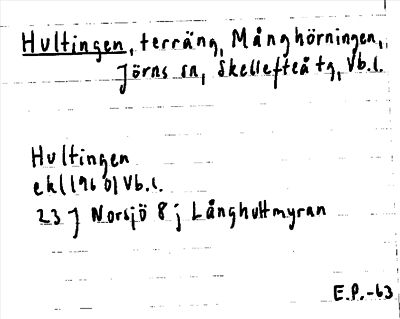 Hultingen, terräng, Månghörningen,
Jörns sn, Skellefteå tg, Vb.l.
Hultingen
ekl(1960)Vb.l.
23 J Norsjö 8 j Långhultmyran
E.P.-63